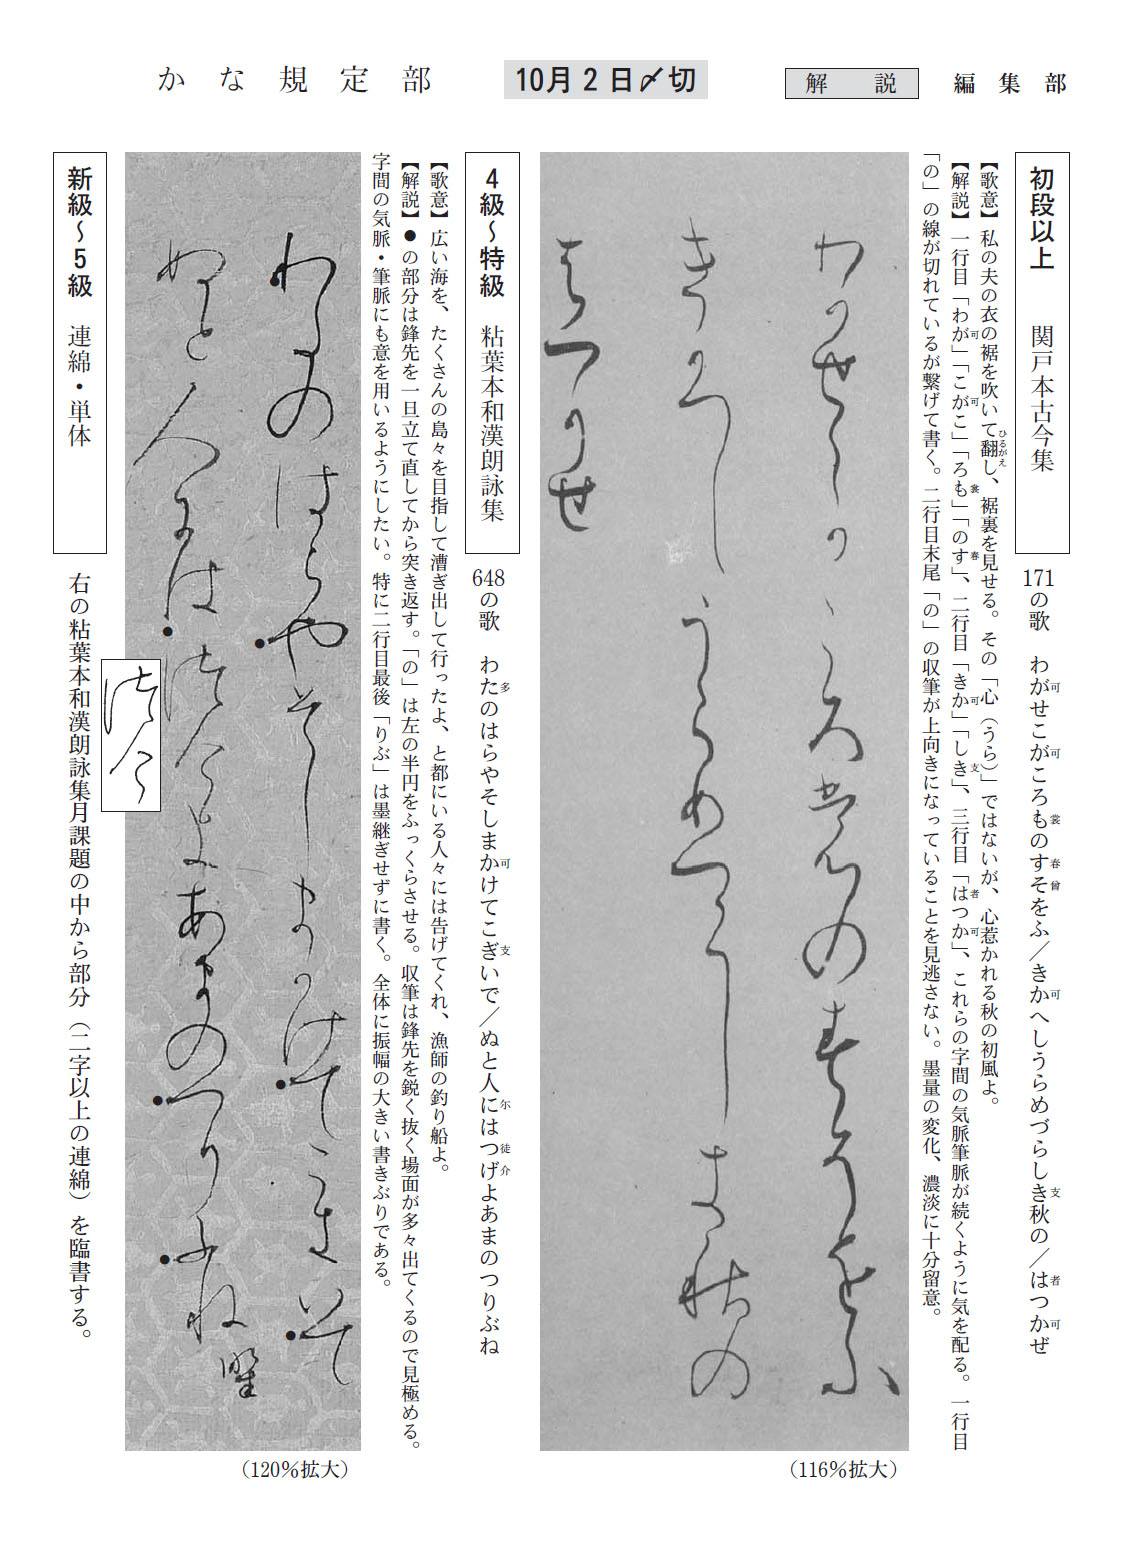 かな規定部
10月2日〆切
解説
編集部
初段以上 関戸本古今集
171の歌 わがせこがころものすそをふ／きかへしうらめづらしき秋の／はつかぜ
可 可 裳 春 曾 可 支 者 可
【歌意】私の夫の衣の裾を吹いて翻し、裾裏を見せる。その「心（うら）」ではないが、心惹かれる秋の初風よ。
ひるがえ
【解説】一行目「わが」「こがこ」「ろも」「のす」、二行目「きか」「しき」、三行目「はつか」、これらの字間の気脈筆脈が続くように気を配る。一行目
可 可 裳 春 可 支 者 可
「の」の線が切れているが繋げて書く。二行目末尾「の」の収筆が上向きになっていることを見逃さない。墨量の変化、濃淡に十分留意。
わ可せこ可
ころ裳の春曾をふ
き可へし
うらめつらし
支秋の
者つ可せ
（116％拡大）
4級～特級 粘葉本和漢朗詠集
648の歌 わたのはらやそしまかけてこぎいで／ぬと人にはつげよあまのつりぶね
多 可 支 尓 徒 介
【歌意】広い海を、たくさんの島々を目指して漕ぎ出して行ったよ、と都にいる人々には告げてくれ、漁師の釣り船よ。
【解説】●の部分は鋒先を一旦立て直してから突き返す。「の」は左の半円をふっくらさせる。収筆は鋒先を鋭く抜く場面が多々出てくるので見極める。
字間の気脈・筆脈にも意を用いるようにしたい。特に二行目最後「りぶ」は墨継ぎせずに書く。全体に振幅の大きい書きぶりである。
わ多のはらやそしま可けてこ支いて
ぬと人尓は徒介よあまのつりふね
野
（120％拡大）
新級～5級 連綿・単体
右の粘葉本和漢朗詠集月課題の中から部分（二字以上の連綿）を臨書する。
徒介